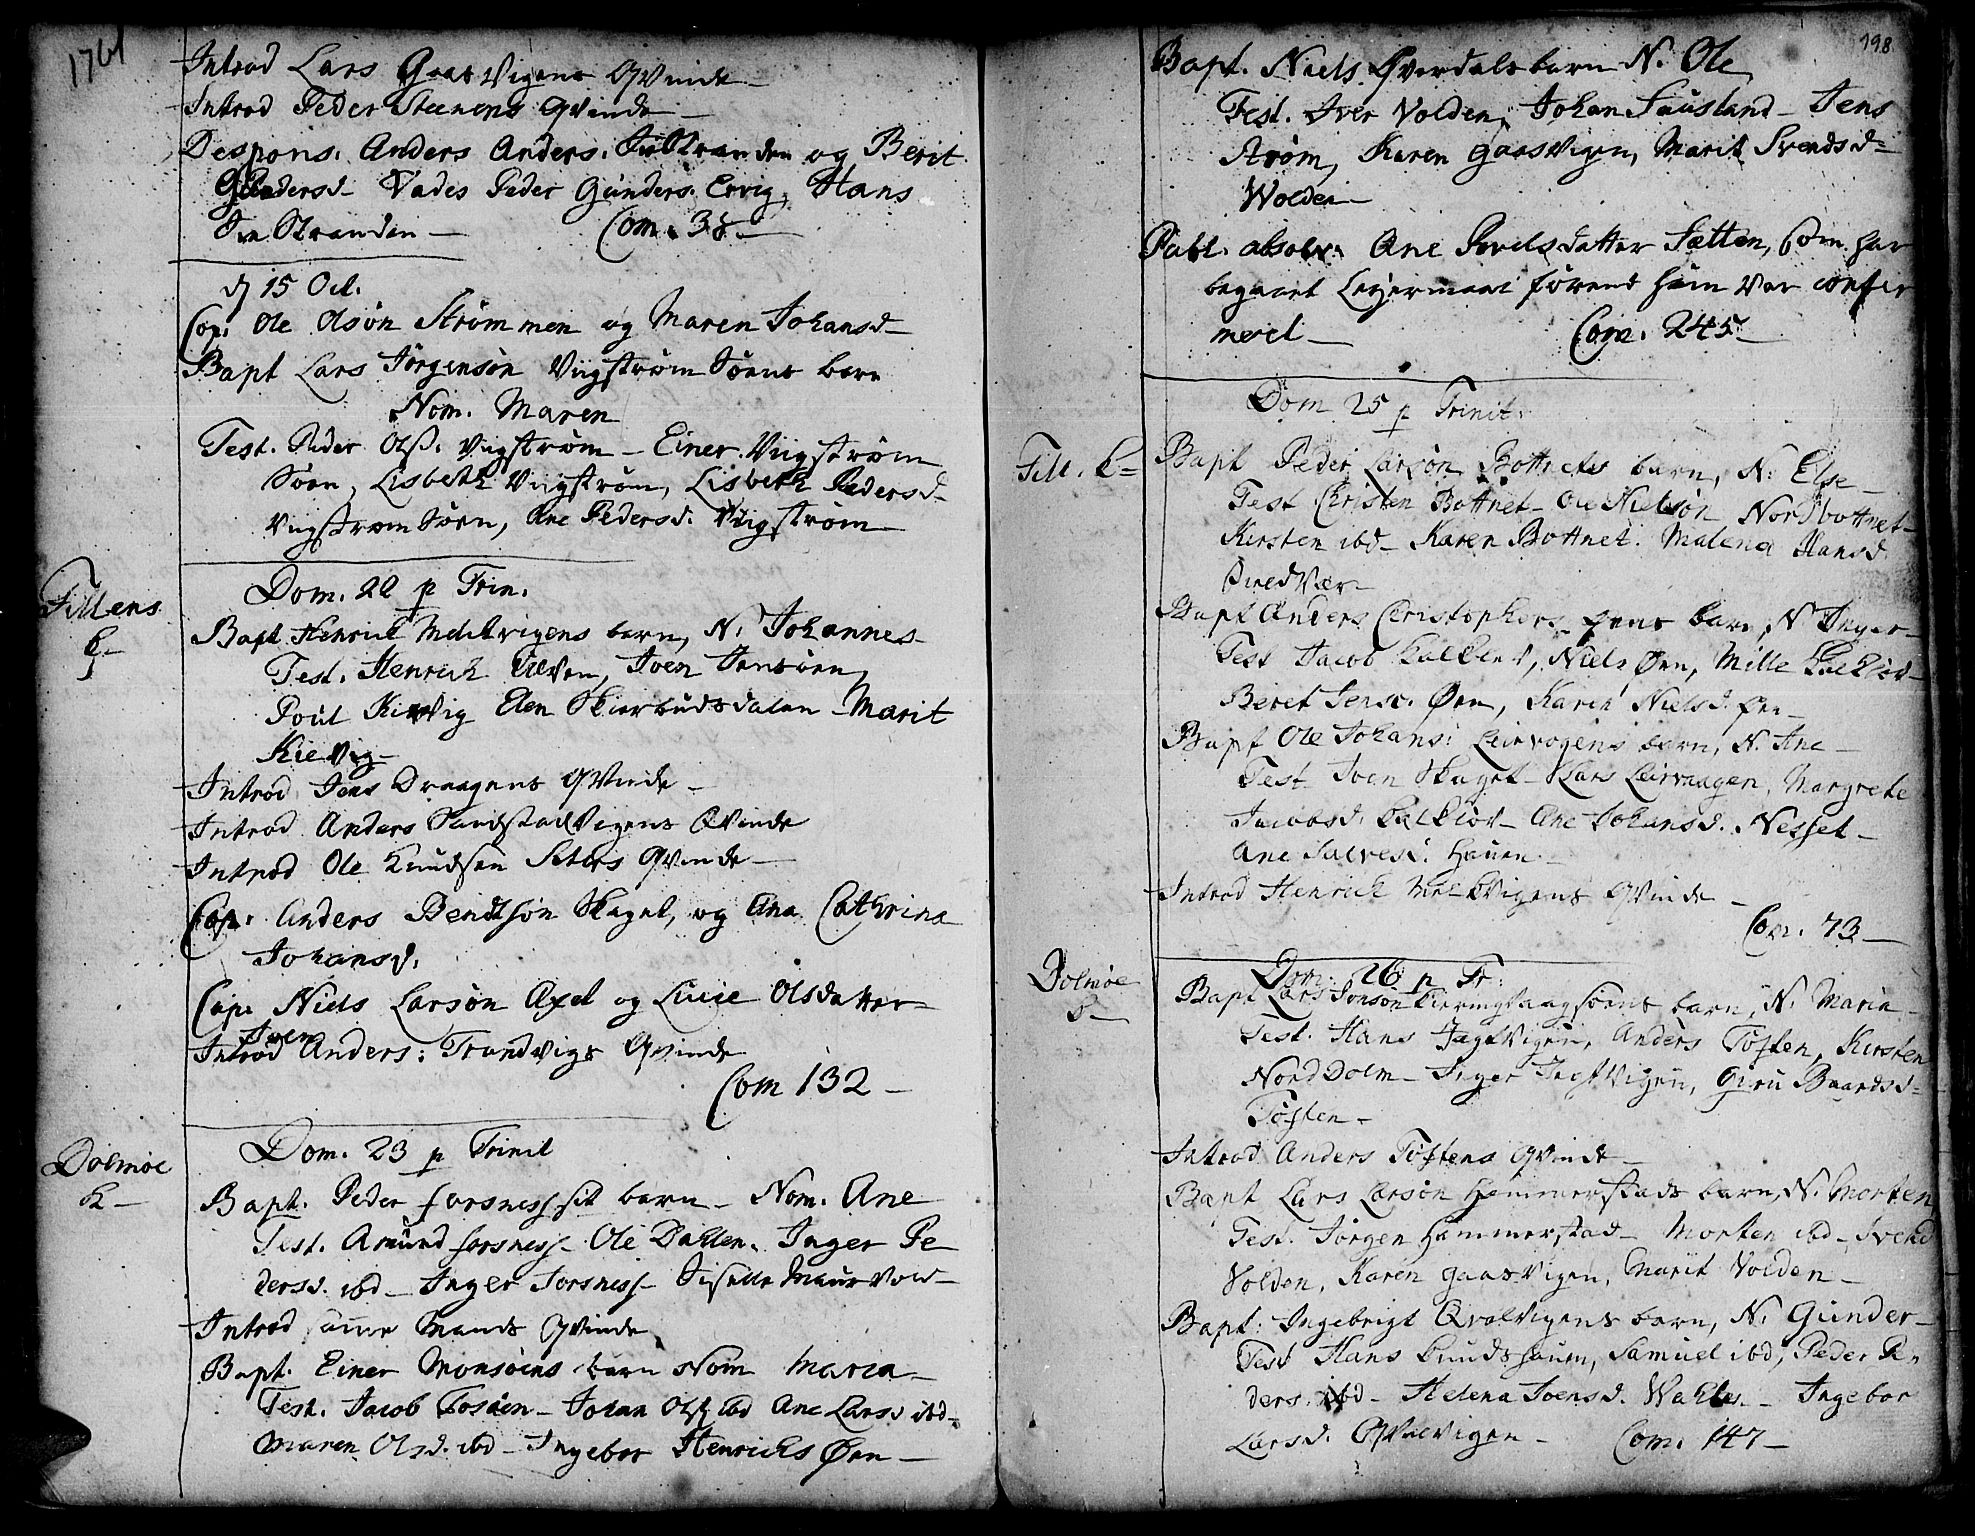 1761
Introd Lars Gaasvigens Qvinde
Introd Peder Steenens Qvinde
Despons. Anders Anders. Stranden og Berit
Gundersd Vades Peder Gunders. Ervig, Hans
Stranden Com. 38
d 15 Oct.
Cop. Ole Olsøn Strømmen og Maren Johansd
Bapt Lars Jørgensøn Vugstrøm Søens barn
Nom. Maren
Test. Peder Olss. Vugstrøm Einer Vugstrøm
Søen, Lisbeth Vugstrøm, Lisbeth Pedersd
Vugstrøm Søen, Ane Pedersd. Vugstrøm
Fillens K
Dom. 22 p Trin.
Bapt Henrich Melchvigens barn, N. Johannes
Test. Henrich Ulven, Joen Jensøen
Poul Kievig Elen Skierbudsdalen Marit
Kievig
Introd Jens Draagens Qvinde
Introd Anders Sandstadvigens Qvinde
Introd Ole Knudsen Seters Qvinde
Cop. Anders Bendtsøn Skaget, og Ana Cathrina
Johansd.
Cop. Niels Larsøn Axel og Lucie Olsdatter
Introd Anders Joen Trandvigs Qvinde
Com 132
Dolmøe K
Dom. 23 p Trinit
Bapt. Peder forsness sit barn Nom. Ane
Test. Amund forsness Ole Dahlen. Inger Pe
dersd. ibd Inger Forsness Sisselle Maurvold
Introd samme Mands Qvinde
Bapt. Einer Monsøens barn Nom Maria
Test. Jacob Fosøen Johan Olss ibd Ane Larsd ibd
Maren Olsd. ibd Ingebor Henrichs Øen
198
Bapt. Niels Øverdals barn N. Ole
Test. Iver Volden, Johan Fausland Jens
Strøm, Karen Gaasvigen, Marit Svendsd
Wolden
Publ. absolv. Ane Povelsdatter Sætten, som har
begaaet Leyermaal førend hun var confir
meret Com. 245
Dom 25 p Trinit.
Fill. K
Bapt Peder Larsøn Bottnets barn, N. Else
Test Christen Bottnet Ole Nielsøn Nordbottnet
Kirsten ibd Karen Bottnet. Malena Hansd
Bapt Anders Christophers Øens barn N Inger
Test Jacob Kalkløv, Niels Øen, Mille Kalkløv
Beret Jensd. Øen, Karen Nielsd. Øen
Bapt Ole Johans. Leirvogens barn, N. Ane
Test Joen Skaget Lars Leirvaagen, Margrete
Jacobsd. Kalkløv Ane Johansd. Nesset
Ane Halvesd. Hauen
Introd Henrich Melkvigens Qvinde
Com. 73
Dolmøe K
Dom. 26 p Tr.
Bapt Lars Jonsøn Kierringvaagsøens barn, N. Maria
Test. Hans Jægtvigen, Anders Tøften, Kirsten
Nord Dolm Inger Jægtvigen, Guru Baardsd
Tøften
Introd Anders Tøftens Qvinde
Bapt Lars Larsøn Hammerstads barn, N. Morten
Test. Jørgen Hammerstad Morten ibd Svend
Volden, Karen Gaasvigen, Marit Volden
Bapt. Ingebrigt Qvalvigens barn, N. Gunder
Test Hans Knudshaun, Samuel ibd, Peder Pe
ders. ibd Helena Joensd. Wahlen Ingebor
Larsd. Qvalvigen Com. 147